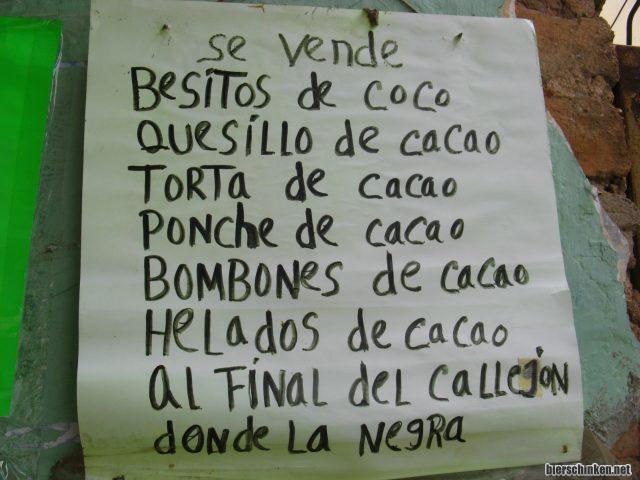 se vende
BesíTos de coco
Quesíllo de cacao
TORTa de cacao
PONche de cacao
BOMBONes de cacao
HeLados de cacao
aL FíNaL deL caLLejóN
doNde La NegRa
bierschinken.net